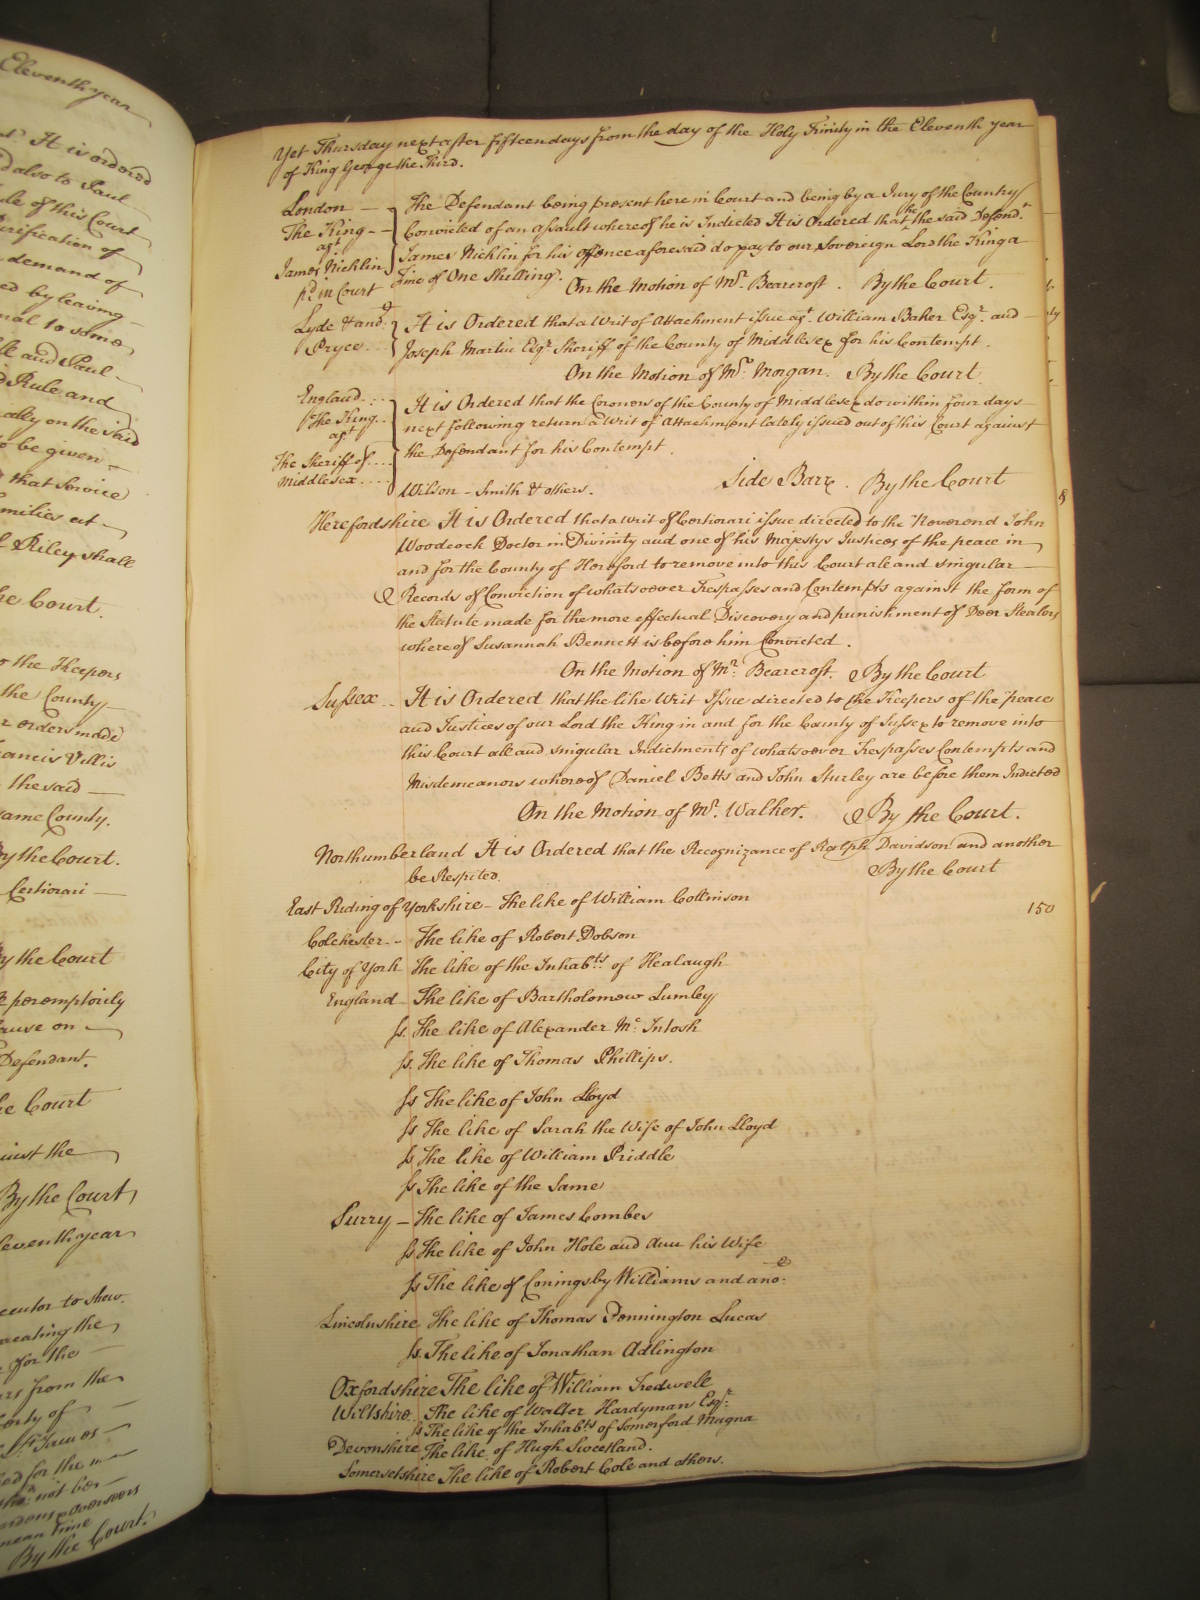 Eleventh year
It is ordered
d also to Paul
ule of this Court
erification of
demand of
ed by leaving
nal to some
and Paul
d Rule and
ally on the said
o be given
that Service
milies at
Riley shall
he Court.
o the Keepers
the County
r orders made
ancis Villis
the said
same County.
By the Court.
Certiorari
By the Court
peremptorily
ause on
Defendant.
he Court
ainst the
By the Court
Eleventh year
ecutor to show
vacating the
for the
ars from the
erty of
St. James
ed for the
not be
mean time
By the Court.
Yet Thursday next after fifteen days from the day of the Holy Trinity in the Eleventh year
of King George the Third.
London The Defendant being present here in Court and being by a Jury of the Country
The King Convicted of an assault whereof he is Indicted It is Ordered that he the said Defend.t
agt
James Nicklin James Nicklin for his offence aforesaid do pay to our Sovereign Lord the King a
pd. in Court Fine of One Shilling. On the Motion of Mr. Bearcroft. By the Court.
Lyde & ano. It is Ordered that a Writ of Attachment issue agt. William Baker Esqr. and
Pryce Joseph Martin Esqr. Sheriff of the County of Middlesex for his Contempt.
On the Motion of Mr. Morgan. By the Court
England It is Ordered that the Coroners of the County of Middlesex do within four days
The King next following return a Writ of Attachment lately issued out of this Court against
agt
The Sheriff of the Defendant for his Contempt.
Middlesex Side Barr. By the Court
Wilson - Smith & others.
Herefordshire It is Ordered that a Writ of Certiorari issue directed to the Reverend John
Woodcock Doctor in Divinity and one of his Majestys Justices of the peace in
and for the County of Hereford to remove into this Court all and singular
Records of Conviction of whatsoever Trespasses and Contempts against the form of
the Statute made for the more effectual Discovery and punishment of Deer Stealers
whereof Susannah Bennett is before him Convicted.
On the Motion of Mr. Bearcroft. By the Court
Sussex It is Ordered that the like Writ Issue directed to the Keepers of the peace
and Justices of our Lord the King in and for the County of Sussex to remove into
this Court all and singular Indictments of whatsoever Trespasses Contempts and
Misdemeanors whereof Daniel Betts and John Sturley are before them Indicted
On the Motion of Mr. Walker. By the Court.
Northumberland It is Ordered that the Recognizance of Ralph Davidson and another
be Respited. By the Court
East Riding of Yorkshire - The like of William Collinson
150
Colchester The like of Robert Dobson
City of York The like of the Inhabts. of Healaugh
England The like of Bartholomew Lumley
ss. The like of Alexander Mc. Intosh
ss. The like of Thomas Phillips.
ss The like of John Lloyd
ss. The like of Sarah the Wife of John Lloyd
ss The like of William Priddle
ss The like of the Same
Surry - The like of James Combes
ss The like of John Hole and Ann his Wife
ss The like of Coningsby Williams and ano.
Lincolnshire The like of Thomas Pennington Lucas
ss. The like of Jonathan Adlington
Oxfordshire The like of William Tredwell
Wiltshire The like of Walter Hardyman Esqr.
ss The like of the Inhabts of Somerford Magna
Devonshire The like of Hugh Sweetland.
Somersetshire The like of Robert Cole and others.